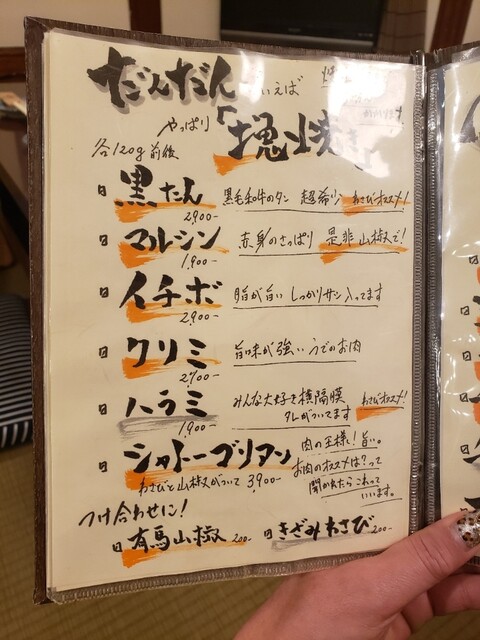 だんだん といえば
やっぱり 「塊焼き」
各120g前後
黒たん 黒毛和牛のタン 超希少 わさびオススメ!
2,900-
マルシン 赤身のさっぱり 是非山椒で!
1,900-
イチボ 脂が旨い しっかりサシ入ってます
2,900-
クリミ 旨味が強い うでのお肉
2,700-
ハラミ みんな大好き横隔膜
タレがついてます わさびオススメ!
1,900-
シャトーブリアン 肉の王様!旨い。
お肉のオススメは?って
聞かれたらこれって
いいます。
わさびと山椒がついて 3,900-
つけ合わせに!
有馬山椒 200- きざみわさび 200-